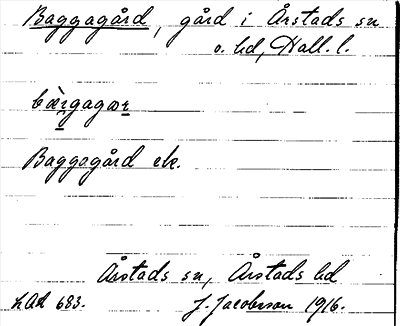 Baggagård, gård i Årstads sn
o. hd, Hall. l.
Baggagård ek.
Årstads sn, Årstads hd
LAL 683. J. Jacobsson 1916.